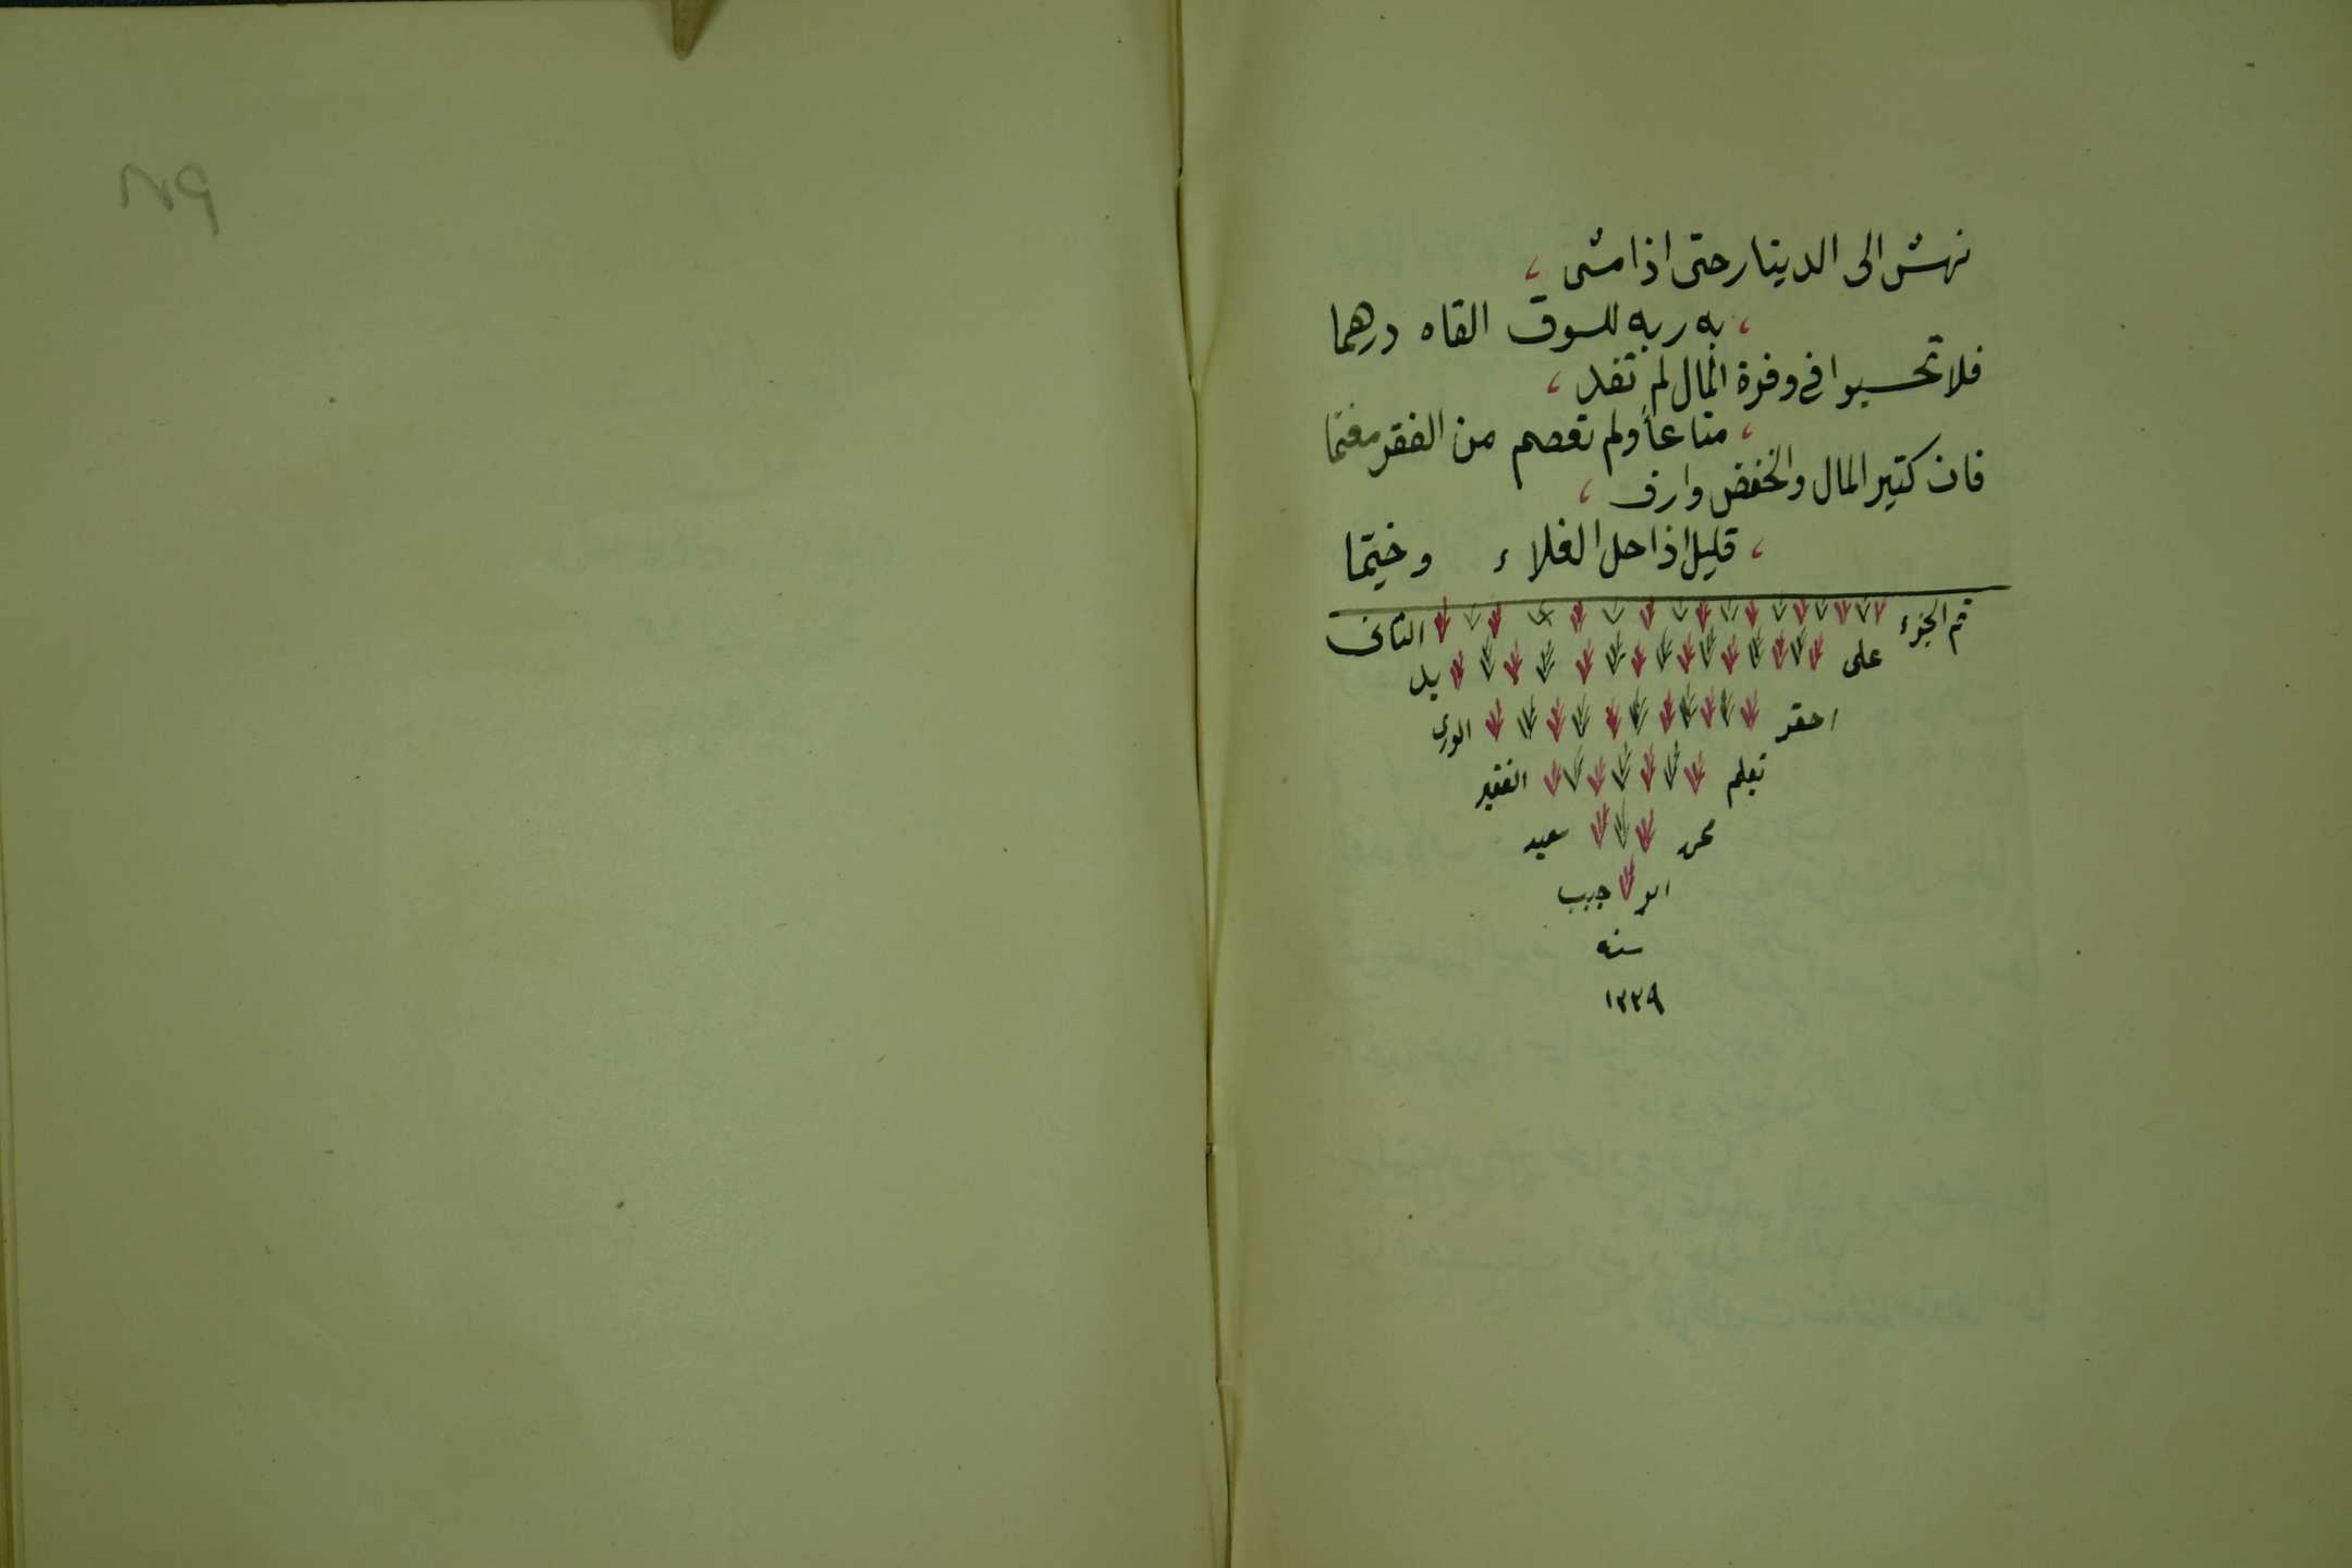 نهش الى الدينار حتى اذا مشى ،
، به ربه للسوق القاه درهما
فلا تحسبوا في وفرة المال لم تفد ،
، متاعاً ولم تعصم من الفقر مغنما
فان كثير المال والخفض وارف ،
، قليل اذا حل الغلاء وخيما
تم الجزء الثاني
على يد
احقر الورى
بقلم الفقير
محمد سعيد
ابو جبب
سنه
١٣٣٩